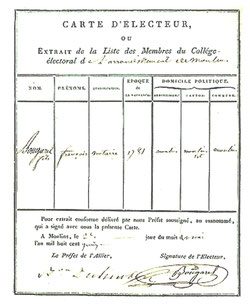 CARTE D'ELECTEUR,
OU
EXTRAIT de la Liste des Membres du Collége
électoral de L'arrondissement de Moulins
NOM. PRÉNOMS. EPOQUE DE LA NAISSANCE. DOMICILE POLITIQUE.
Bougarel fils françois notaire 1781 moulins moulins moulins
Pour extrait conforme délivré par nous Préfet soussigné, au susnommé,
qui a signé avec nous la présente Carte.
A Moulins, le jour du mois de mai
l'an mil huit cent quinze
Le Préfet de l'Allier, Signature de l'Electeur.
Bougarel